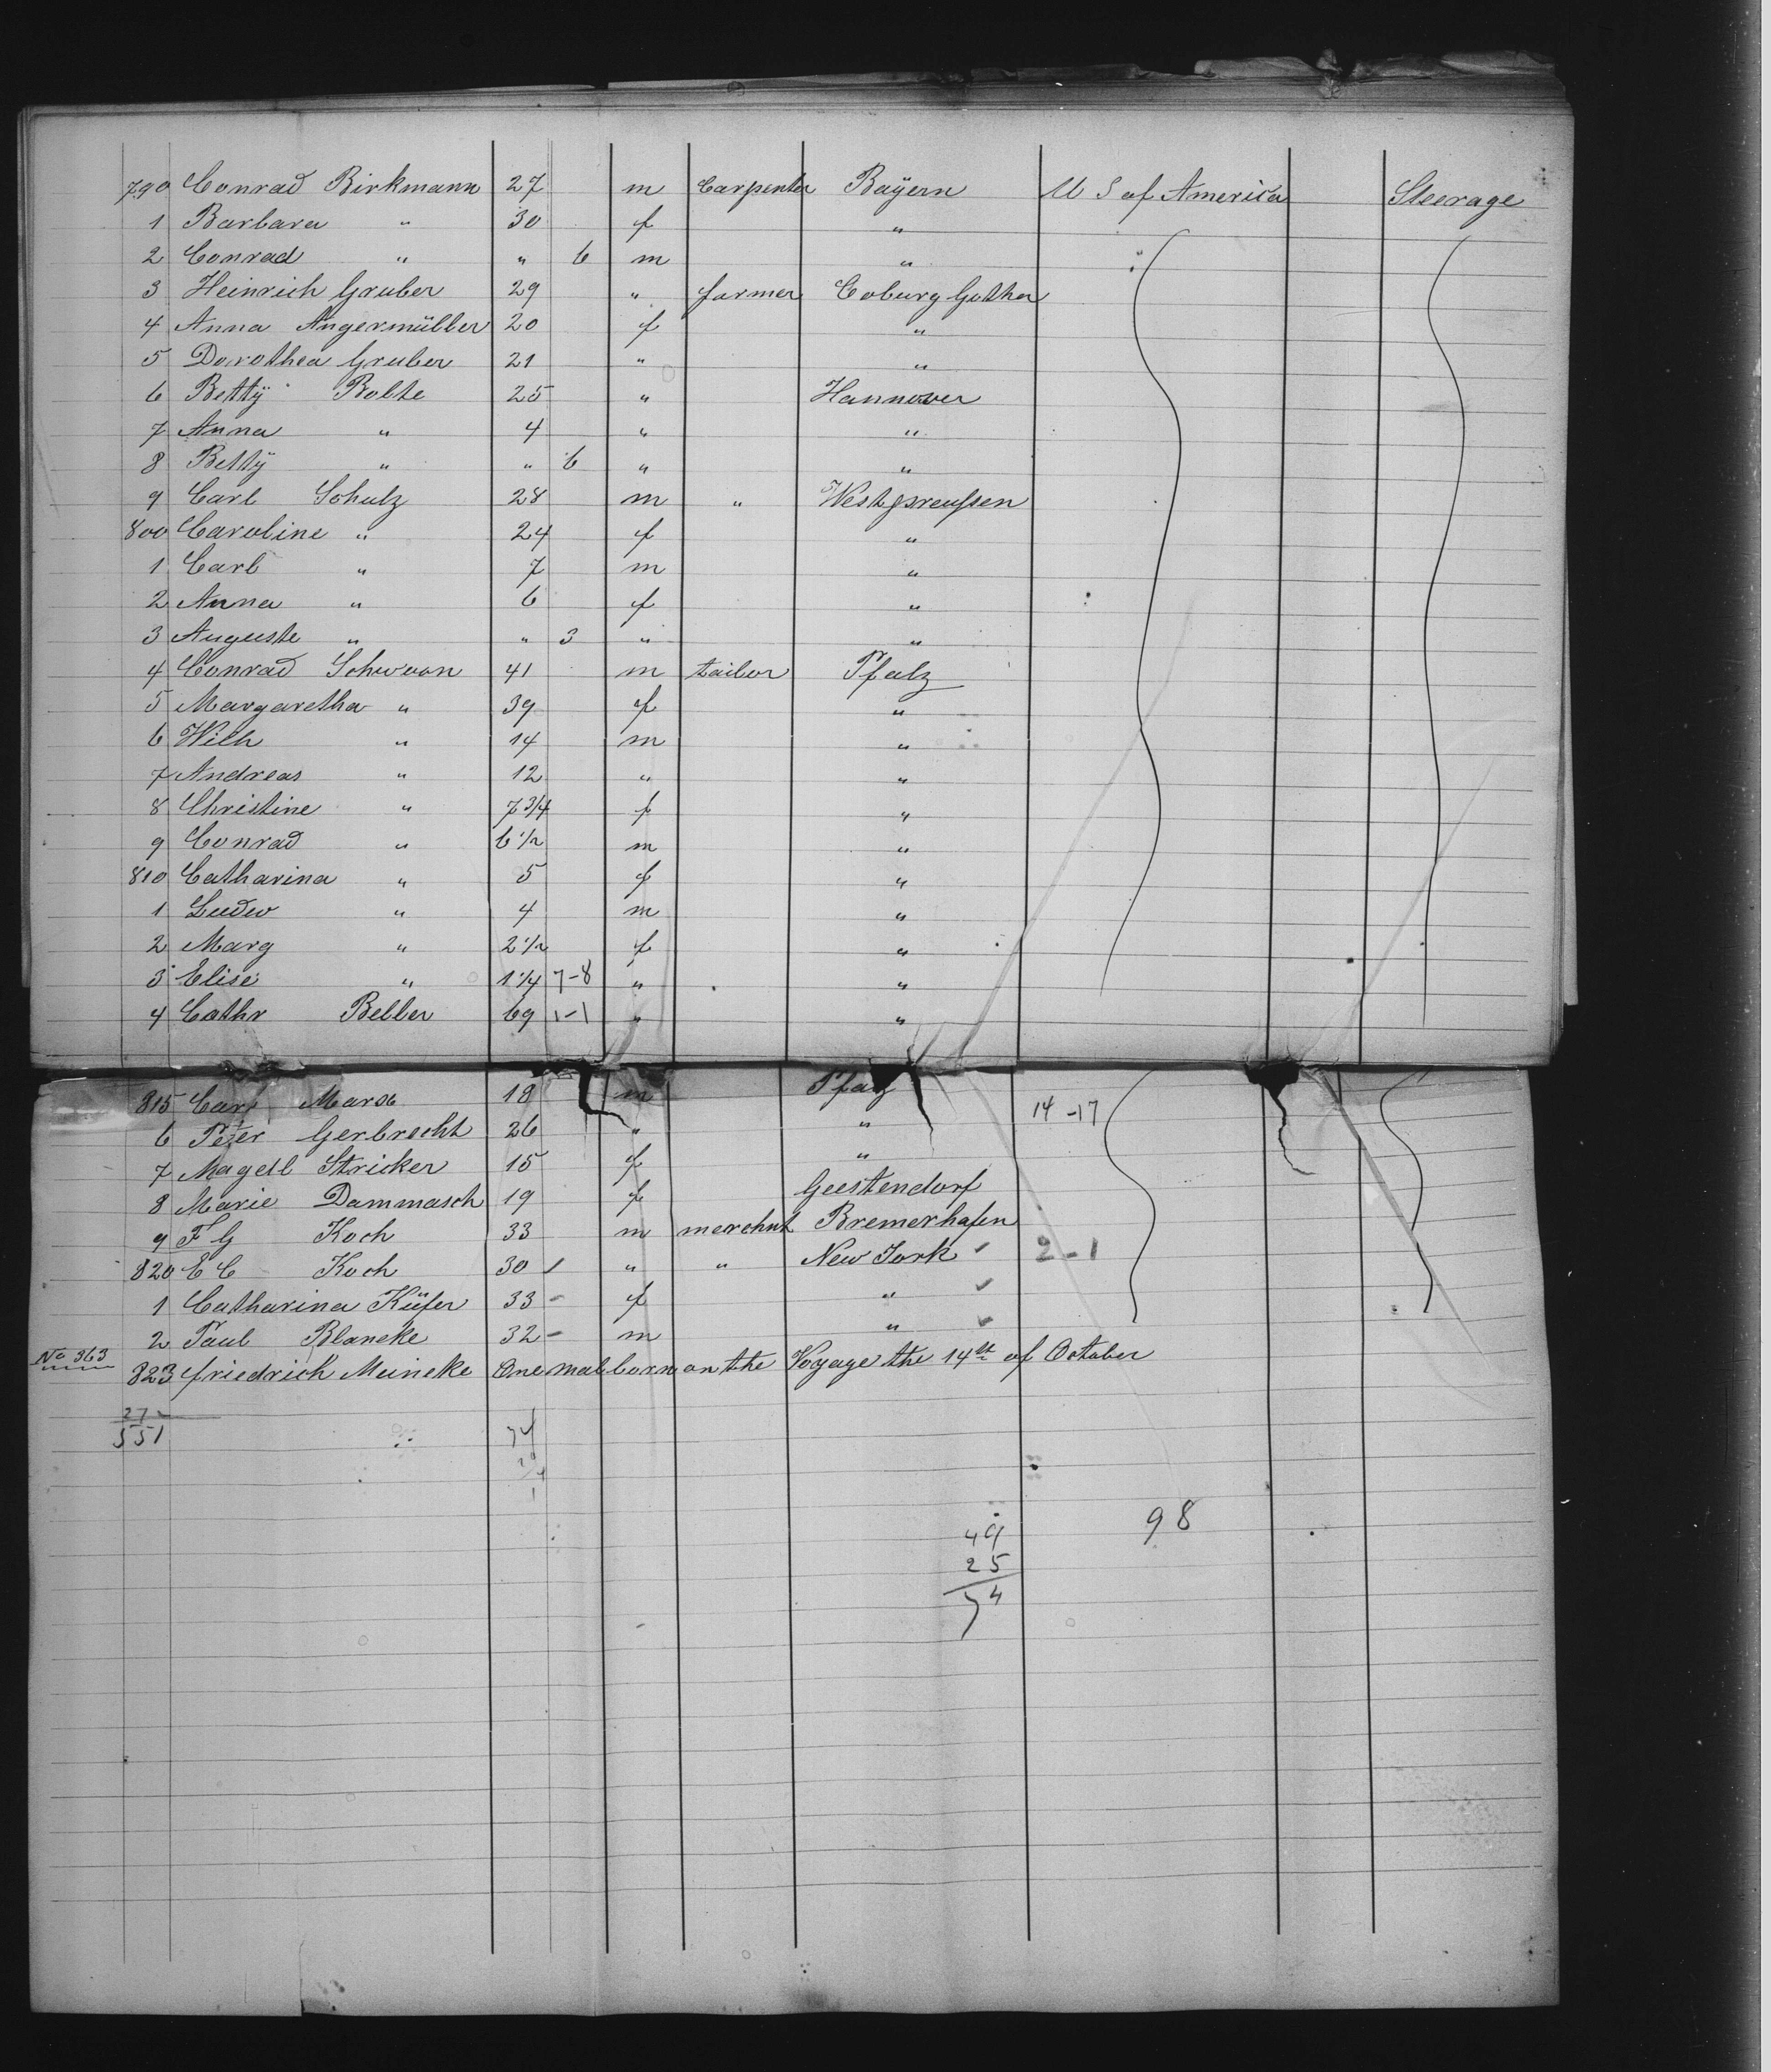 790 Conrad Birkmann 27 m Carpenter Bayern U S of America Steerage
1 Barbara " 30 f "
2 Conrad " " 6 m "
3 Heinrich Gruber 29 " farmer Coburg Gotha
4 Anna Angermüller 20 f "
5 Dorothea Gruber 21 " "
6 Betty Bolte 25 " Hannover
7 Anna " 4 " "
8 Betty " " 6 " "
9 Carl Schulz 28 m " Westpreußen
800 Caroline " 24 f "
1 Carl " 7 m "
2 Anna " 6 f "
3 Auguste " " 3 " "
4 Conrad Schwaan 41 m tailor Pfalz
5 Margaretha " 39 f "
6 Wilh " 14 m "
7 Andreas " 12 " "
8 Christine " 7 3/4 f "
9 Conrad " 6 1/2 m "
810 Catharina " 5 f "
1 Ludw " 4 m "
2 Marg " 2 1/2 f "
3 Elise " 1 1/4 7-8 " "
4 Cathr Beller 69 1-1 " "
815 Carl Marx 18 m Pfalz
6 Peter Gerbrecht 26 " " 14-17
7 Magdl Stricker 15 f "
8 Marie Dammasch 19 f Geestendorf
9 F G Koch 33 m merchnt Bremerhafen
820 E C Koch 30 " " New York 2-1
1 Catharina Küfer 33 f "
2 Paul Blancke 32 m "
No 363
823 friedrich Meineke One male born on the Voyage the 14th of October
272
551
74
98
49
25
74